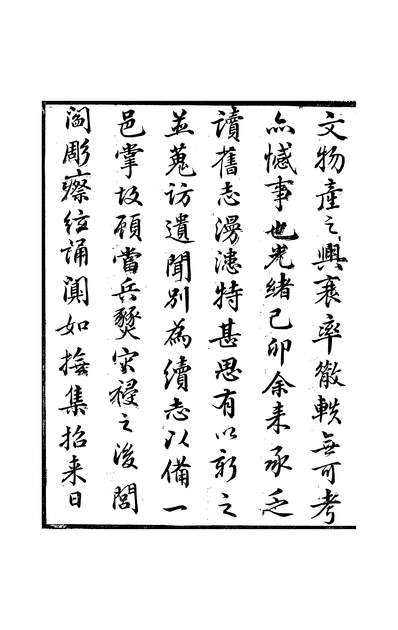 文物產之興衰率徹軼無可考
亦憾事也光緒己卯余来承乏
讀舊志漫漶特甚思有以新之
並蒐访遺聞別為續志以備一
邑掌故顧當兵燹灾祲之後閭
閻彫瘵絃誦闃如撫集招来日